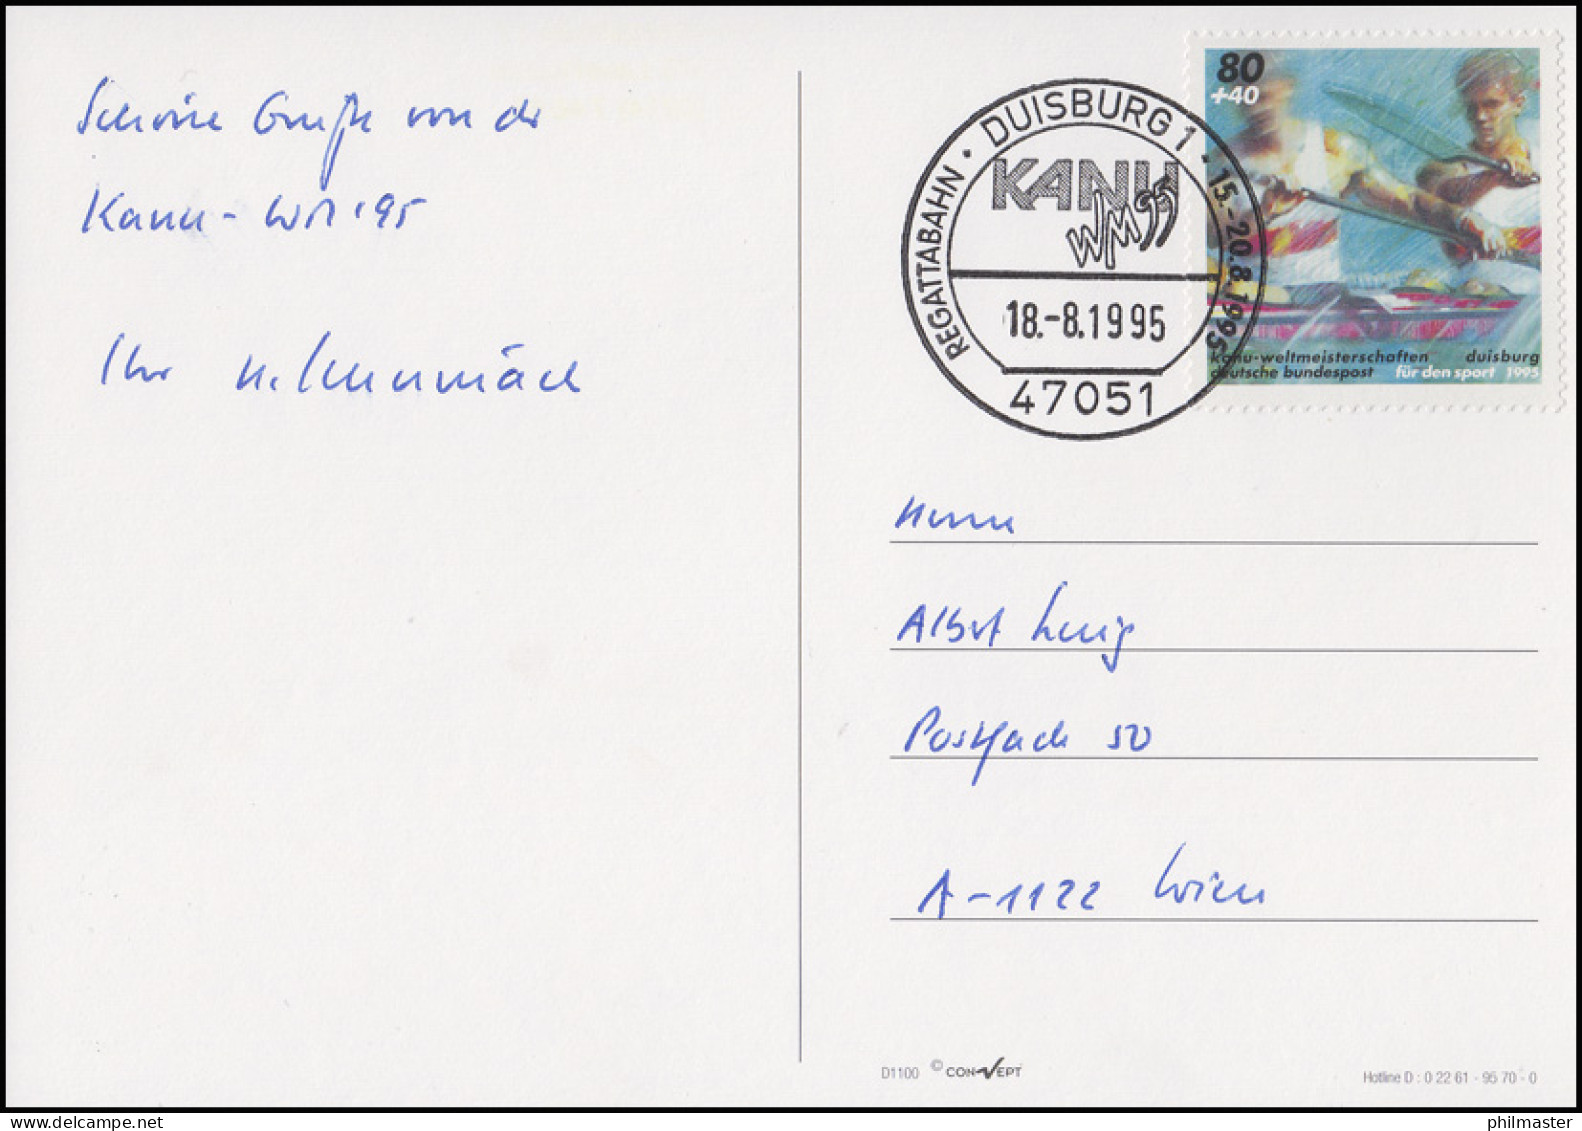 Schöne Grüße von der
Kanu-WM '95
Ihr
80
+40
kanu-weltmeisterschaften duisburg
deutsche bundespost für den sport 1995
REGATTABAHN · DUISBURG 1 · 15.-20.8.1995
KANU
WM 95
18.-8.1995
47051
Herrn
Albert
Postfach 50
A-1122 Wien
D1100 © CONVEPT
Hotline D : 0 22 61 - 95 70 - 0
philmaster